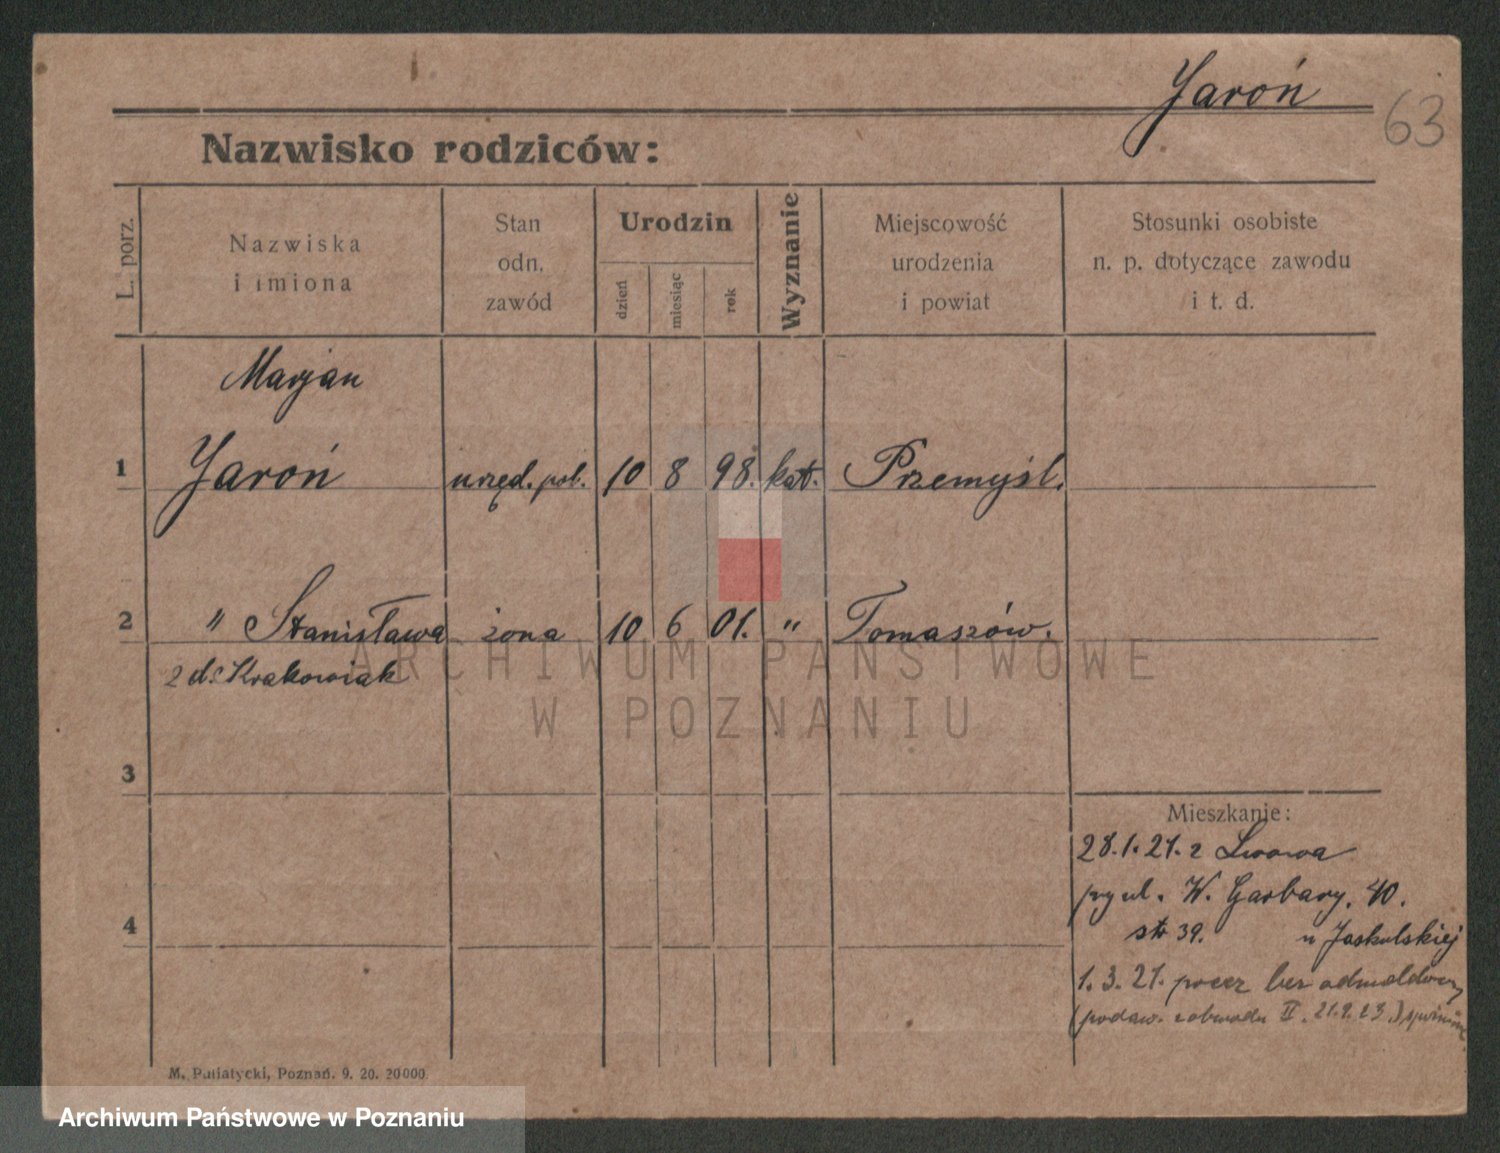 Jaroń
63
Nazwisko rodziców:
L. porz.
Nazwiska
i imiona
Stan
odn.
zawód
Urodzin
dzień
miesiąc
rok
Wyznanie
Miejscowość
urodzenia
i powiat
Stosunki osobiste
n. p. dotyczące zawodu
i t. d.
Marjan
1 Jaroń urzęd. pol. 10 8 98. kat. Przemyśl.
2 " Stanisława żona 10 6 01. " Tomaszów.
2 d: Krakowiak
3
Mieszkanie:
28.1.21. z Lwowa
przy ul. W. Garbary. 40.
4
str 39. u Jaskulskiej
1. 3. 21. precz bez
(podaw. z obwodu II. 21.9.23.)
M. Putiatycki, Poznań. 9. 20. 20000.
ARCHIWUM PAŃSTWOWE
W POZNANIU
Archiwum Państwowe w Poznaniu